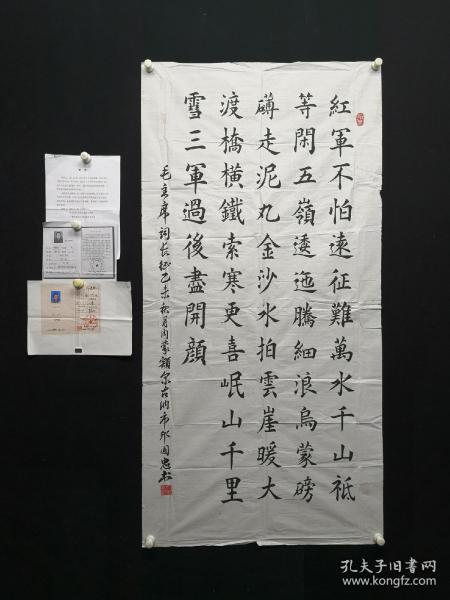 紅軍不怕遠征難萬水千山祗
等閑五嶺逶迤騰細浪烏蒙磅
礴走泥丸金沙水拍雲崖暖大
渡橋橫鐵索寒更喜岷山千里
雪三軍過後盡開顔
毛主席词长征乙未秋月内蒙额尔古纳市邢国忠书
孔夫子旧书网
www.kongfz.com